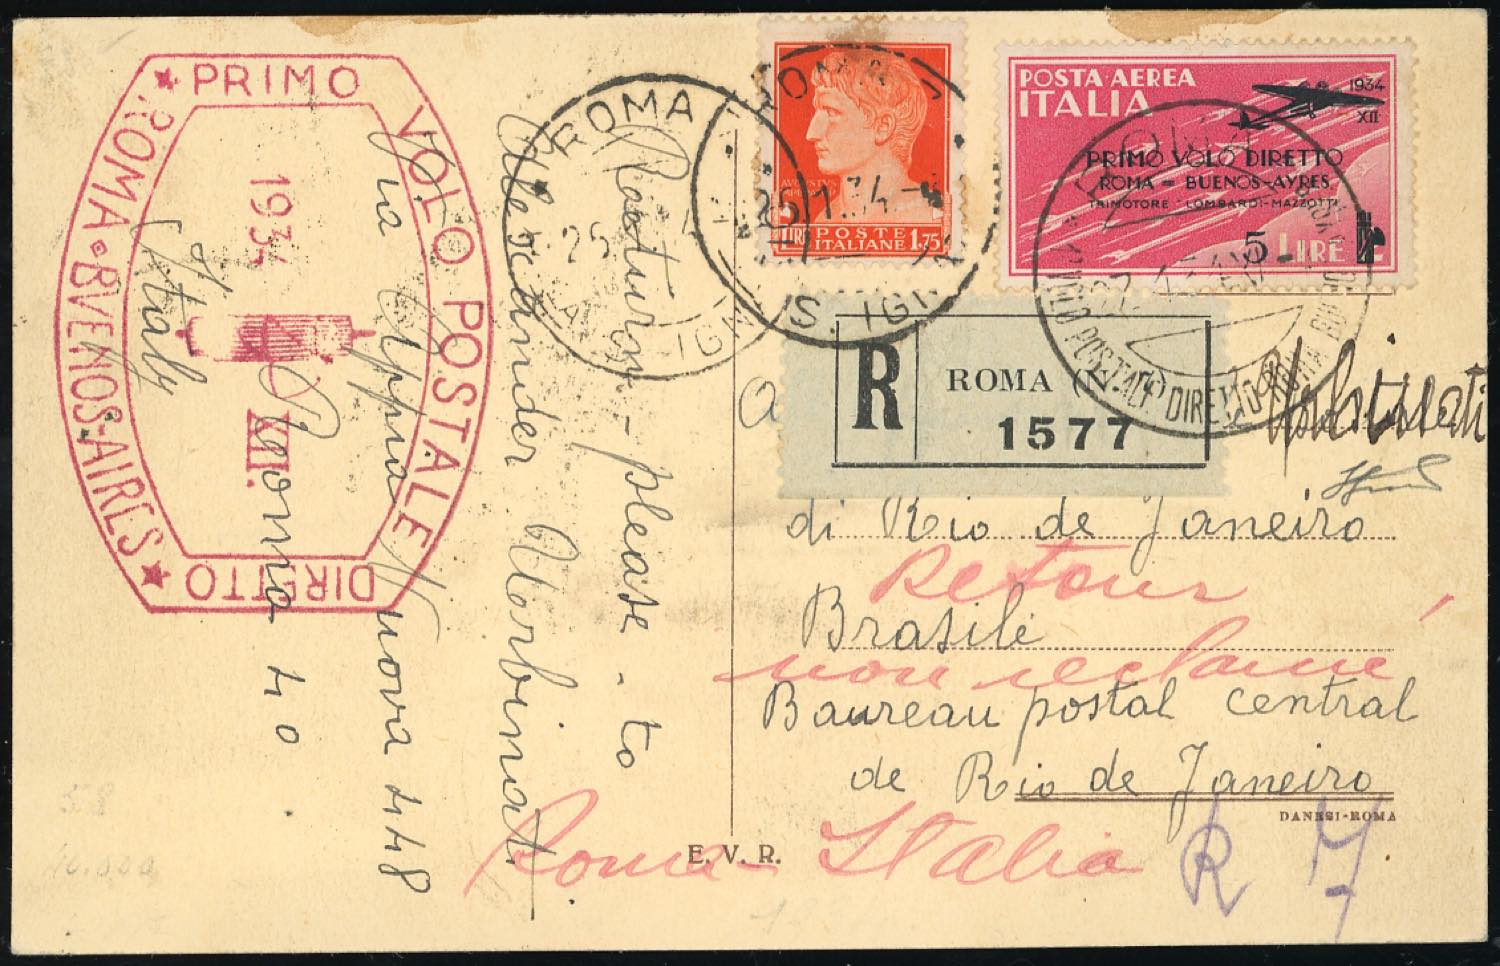 ★ PRIMO VOLO POSTALE DIRETTO ★
ROMA • BVENOS-AIRES
1934 XII.
Return - please - to
Alexander
Via Appia Nuova 448
Roma 40.
Italy
ROMA
25 1 34
POSTE
ITALIANE
LIRE 1.75
POSTA AEREA
ITALIA
1934
XII
PRIMO VOLO DIRETTO
ROMA = BUENOS-AYRES
TRIMOTORE "LOMBARDI-MAZZOTTI"
5 LIRE 2
R
ROMA (N.
1577
di Rio de Janeiro
Retour
Brasile
non réclamé
Baureau postal central
de Rio de Janeiro
DANESI-ROMA
Roma - Italia
E. V. R.
R 7